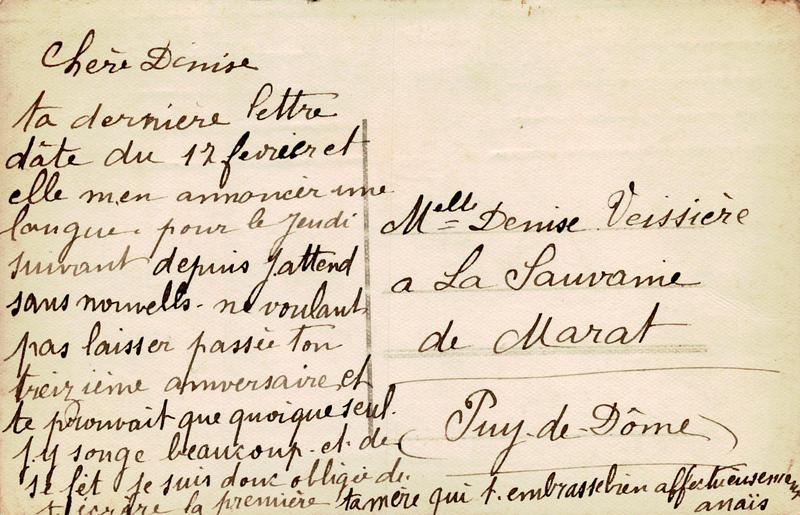 Chère Denise
ta dernière lettre
dâte du 17 fevrier et
elle m'en annoncer une
longue. pour le Jeudi
suivant depuis J'attend
sans nouvells - ne voulant
pas laisser passée ton
treizième anniversaire et
te prouvait que quoique seul.
J'y songe beaucoup - et - de
se fèt je suis donc obligée de
t'ecrdre la première ta mère qui t'embrasse bien affectueusement
anaïs
Melle Denise Veissière
a La Sauvanie
de Marat
(Puy-de-Dôme)